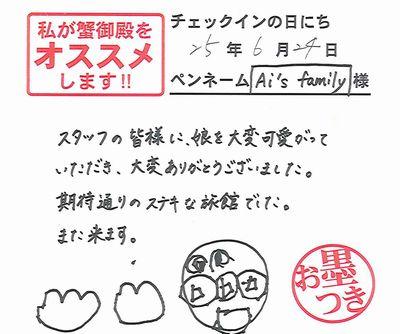 私が蟹御殿を
オススメ
します!!
チェックインの日にち
25年6月24日
ペンネーム Ai's family 様
スタッフの皆様に、娘を大変可愛がって
いただき、大変ありがとうございました。
期待通りのステキな旅館でした。
また来ます。
お墨つき